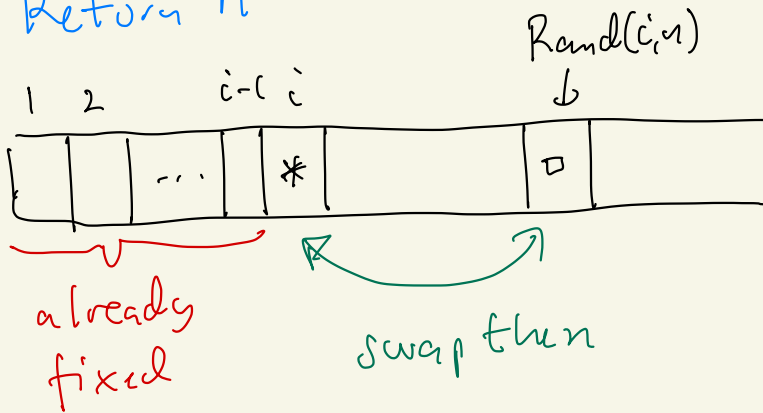 Return A
Rand(i,n)
1 2 i-1 i
... *
already
fixed
swap then